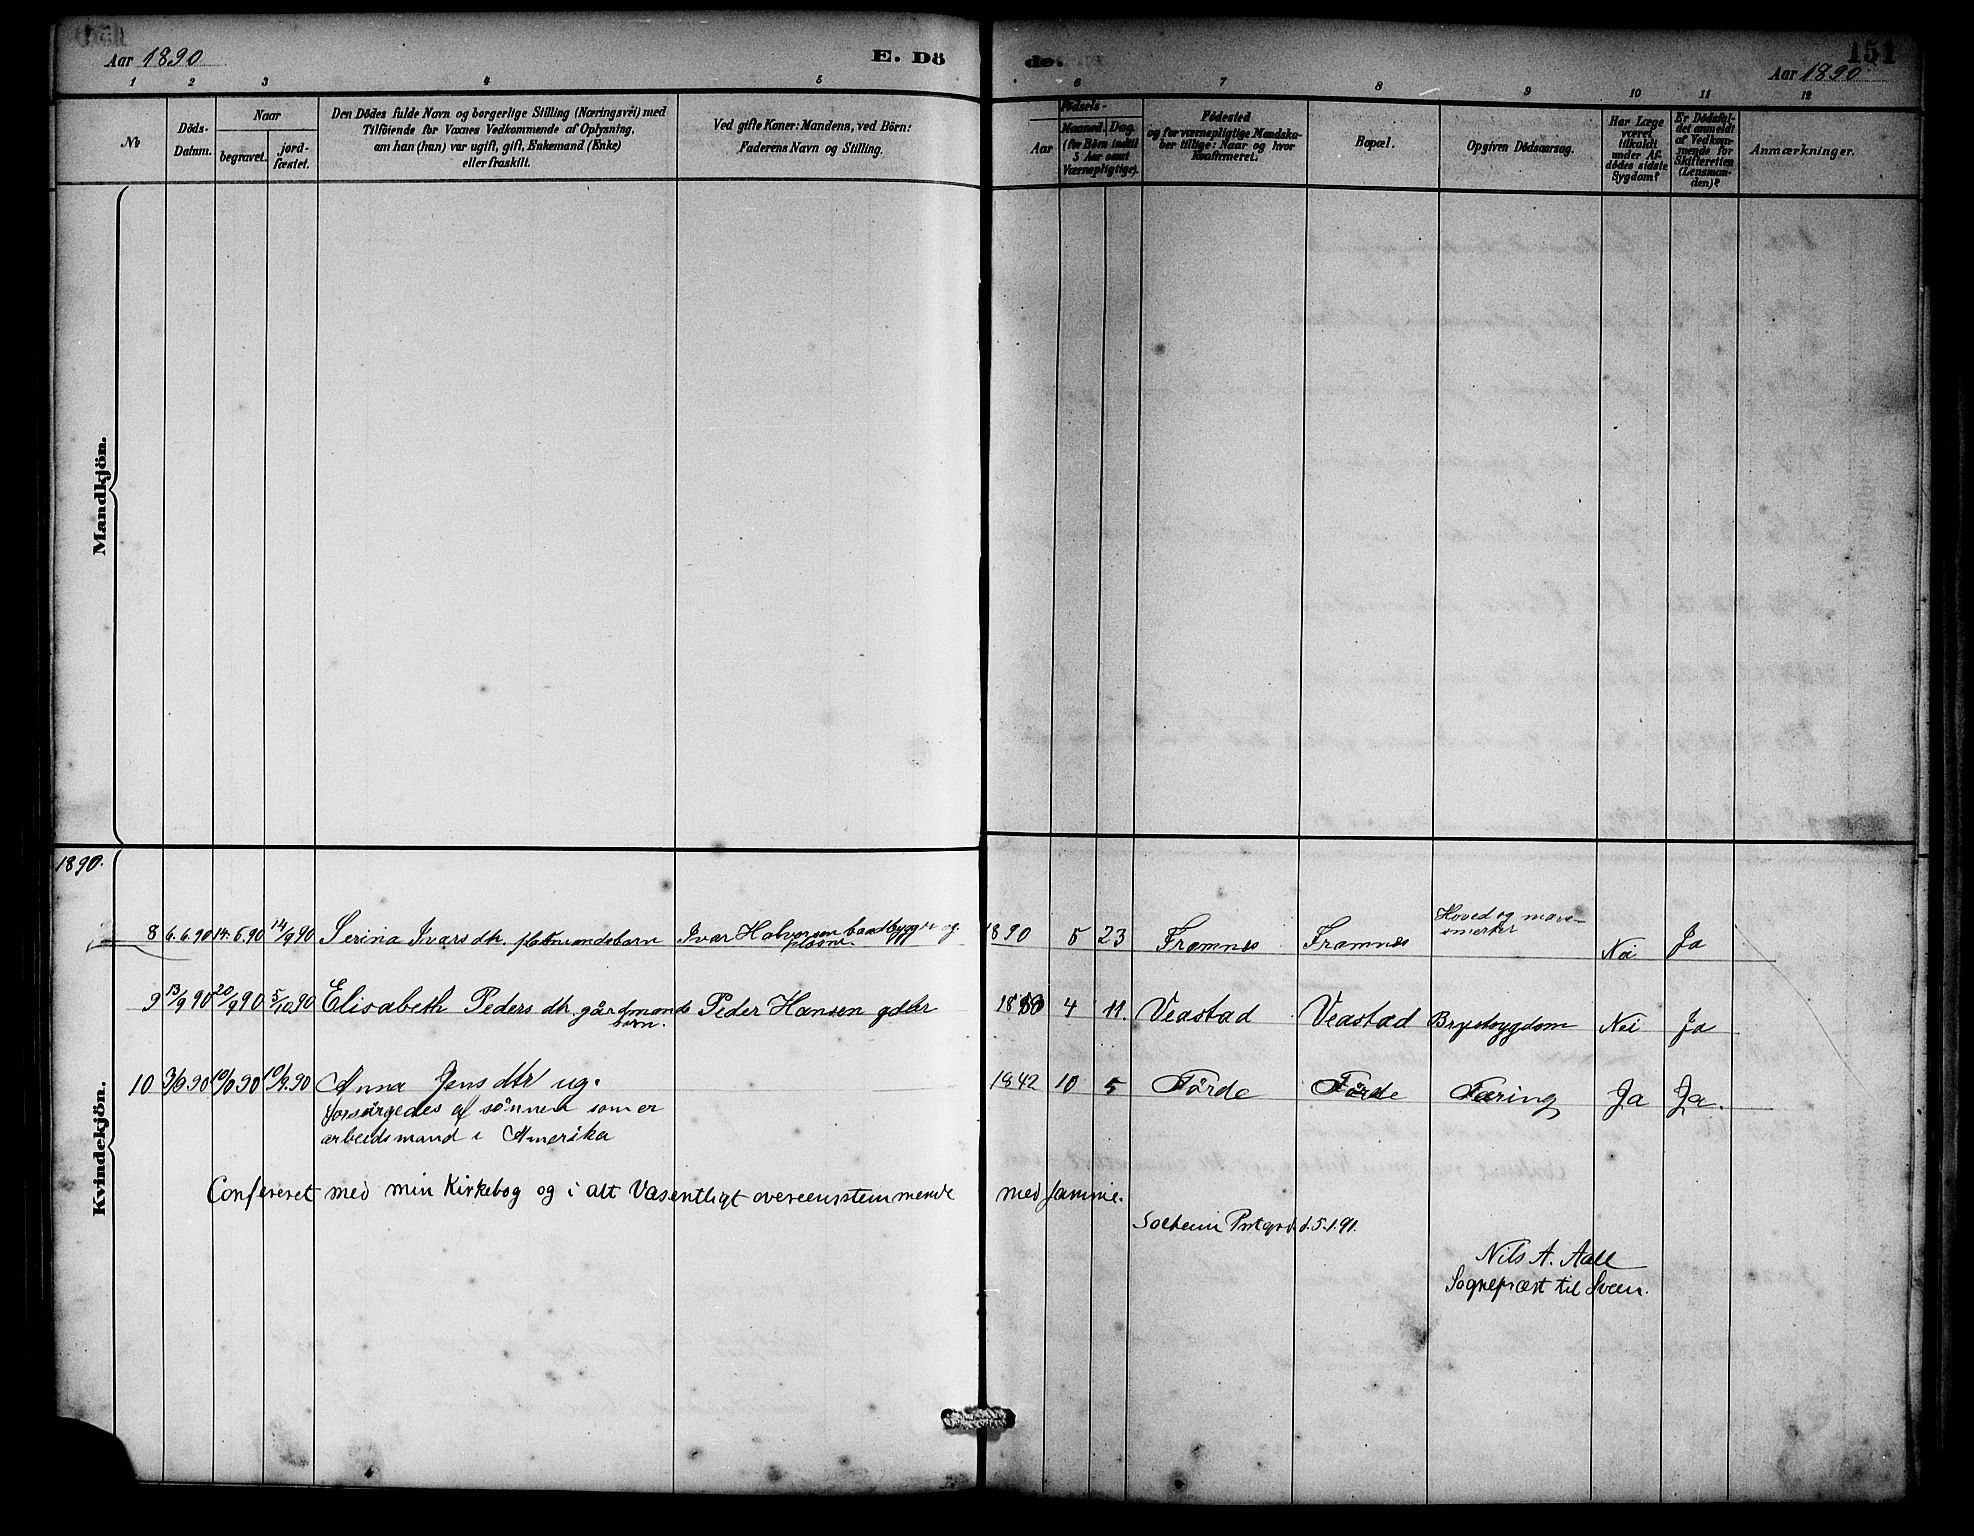 Aar 1890
E. Dö
de.
151
Aar 1890.
1 2 3 4 5
6 7 8 9 10 11 12
No
Döds-
Datum.
Naar
begravet.
jord-
fæstet.
Den Dödes fulde Navn og borgerlige Stilling (Næringsvei) med
Tilföiende for Voxnes Vedkommende af Oplysning,
om han (hun) var ugift, gift, Enkemand (Enke)
eller fraskilt.
Ved gifte Koner: Mandens, ved Börn:
Faderens Navn og Stilling.
Födsels-
Aar
Maaned. Dag.
(for Börn indtil
5 Aar samt
Værnepligtige).
Födested
og for værnepligtige Mandska-
ber tillige: Naar og hvor
Konfirmeret.
Bopæl.
Opgiven Dödsaarsag.
Har Læge
været
tilkaldt
under Af-
dödes sidste
Sygdom?
Er Dödsfal-
det anmeldt
af Vedkom-
mende for
Skifteretten
(Lensman-
den)?
Anmærkninger.
Mandkjön.
1890.
Kvindekjön.
8 6.6.90 14.6.90 14/9 90 Serina Ivars dtr. Ivar Halvorsen baadbygger og 1890 5 23 Framnes Framnes Hoved og mave- Nei Ja
9 13/9 90 20/9 90 5/10 90 Elisabeth Peders dtr. gårdmands Peder Hansen gdbr 4 11. Veastad Veastad Brystsygdom Nei Ja
barn.
10 3/9 90 Anna Jens dtr ug. 1842 10 5 Førde Førde Tæring Ja Ja.
forsørgedes af sønnen som er
arbeidsmand i Amerika
Confereret med min Kirkebog og i alt Væsentligt overeensstemmende med samme.
d. 5.1.91.
Nils A. Aall
Sognepræst til Sveen.